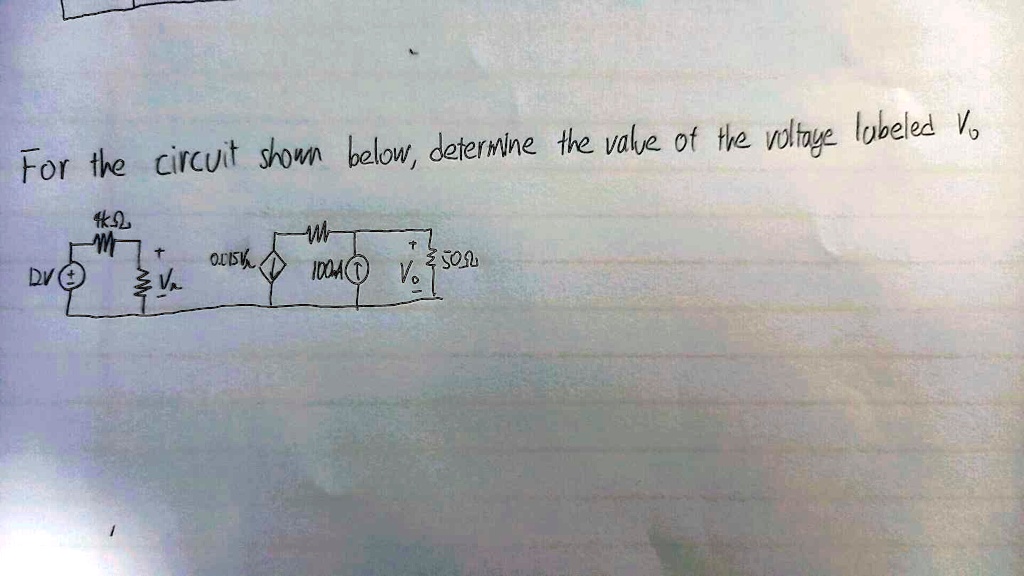 For the circuit shown below, determine the value of the voltage labeled Vo
4kΩ
12V
+
Vx
-
100mA
+
Vo
-
50Ω